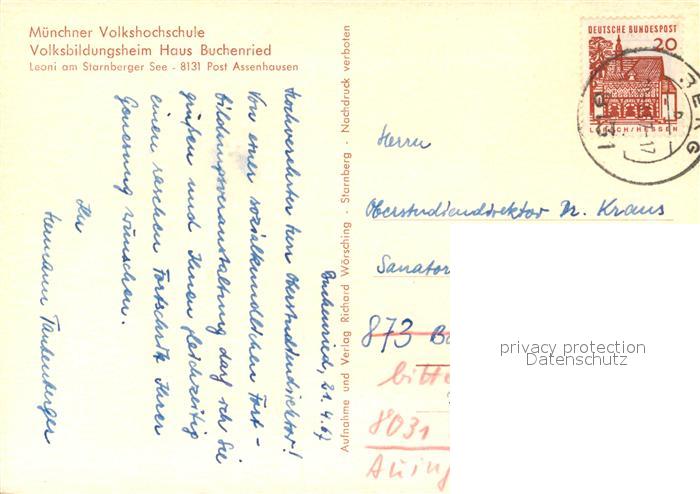 Münchner Volkshochschule
Volksbildungsheim Haus Buchenried
Leoni am Starnberger See - 8131 Post Assenhausen
Buchenried, 21.4.67
Hochverehrter Herr Oberstudiendirektor!
Von einer sozialkundlichen Fort-
bildungsveranstaltung darf ich Sie
grüßen und Ihnen gleichzeitig
einen raschen Fortschritt Ihrer
Genesung wünschen.
Ihr
Hermann Tautenberger
Aufnahme und Verlag Richard Wörsching - Starnberg - Nachdruck verboten
DEUTSCHE BUNDESPOST
20
LORSCH/HESSEN
BERG
8131
Herrn
Oberstudiendirektor Dr. Kraus
Sanator
873 Ba
bitte
8031
Auing
privacy protection
Datenschutz